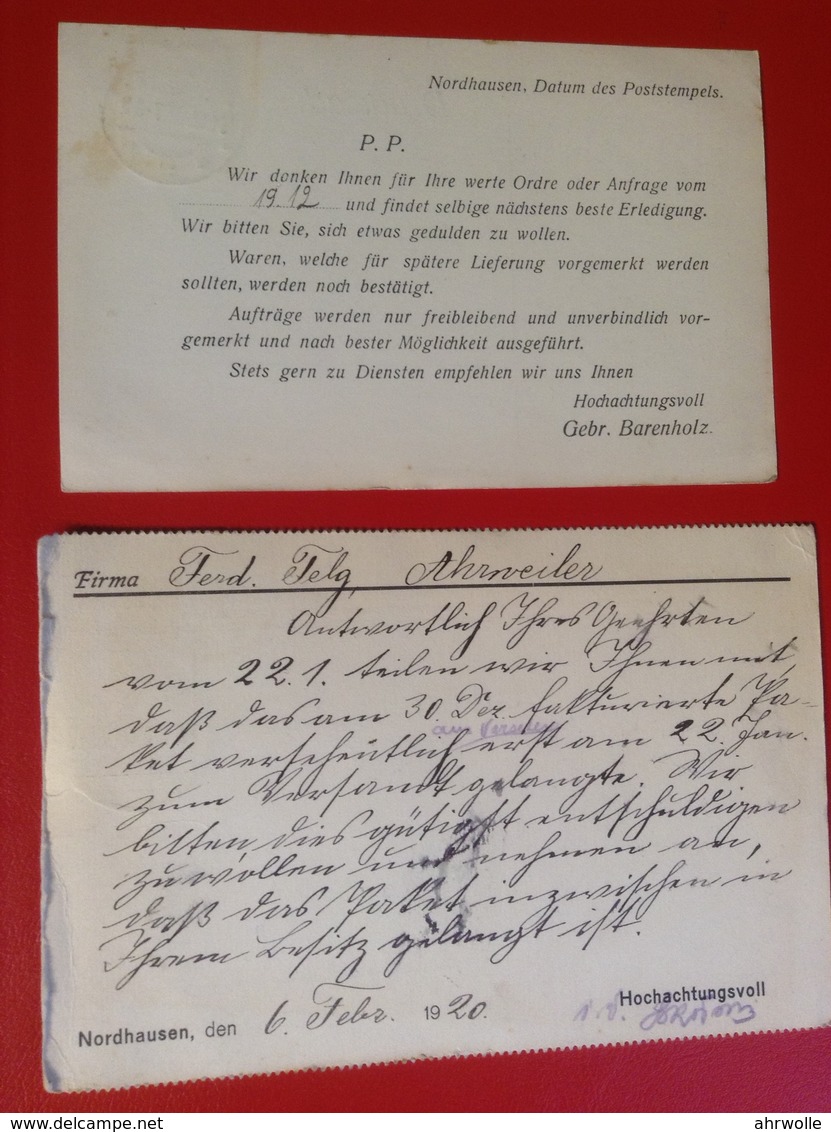 Nordhausen, Datum des Poststempels.
P. P.
Wir danken Ihnen für Ihre werte Ordre oder Anfrage vom
19.12 und findet selbige nächstens beste Erledigung.
Wir bitten Sie, sich etwas gedulden zu wollen.
Waren, welche für spätere Lieferung vorgemerkt werden
sollten, werden noch bestätigt.
Aufträge werden nur freibleibend und unverbindlich vor-
gemerkt und nach bester Möglichkeit ausgeführt.
Stets gern zu Diensten empfehlen wir uns Ihnen
Hochachtungsvoll
Gebr. Barenholz.
Firma Ferd. Telg, Ahrweiler
Antwortlich Ihres Geehrten
vom 22.1. teilen wir Ihnen mit,
daß das am 30. Dez. fakturierte Pa-
aus Versehen
ket versehentlich erst am 22. Jan.
zum Versandt gelangte. Wir
bitten dies gütigst entschuldigen
zu wollen und nehmen an,
daß das Paket inzwischen in
Ihrem Besitz gelangt ist.
Hochachtungsvoll
Nordhausen, den 6. Febr. 1920.
www.delcampe.net
ahrwolle